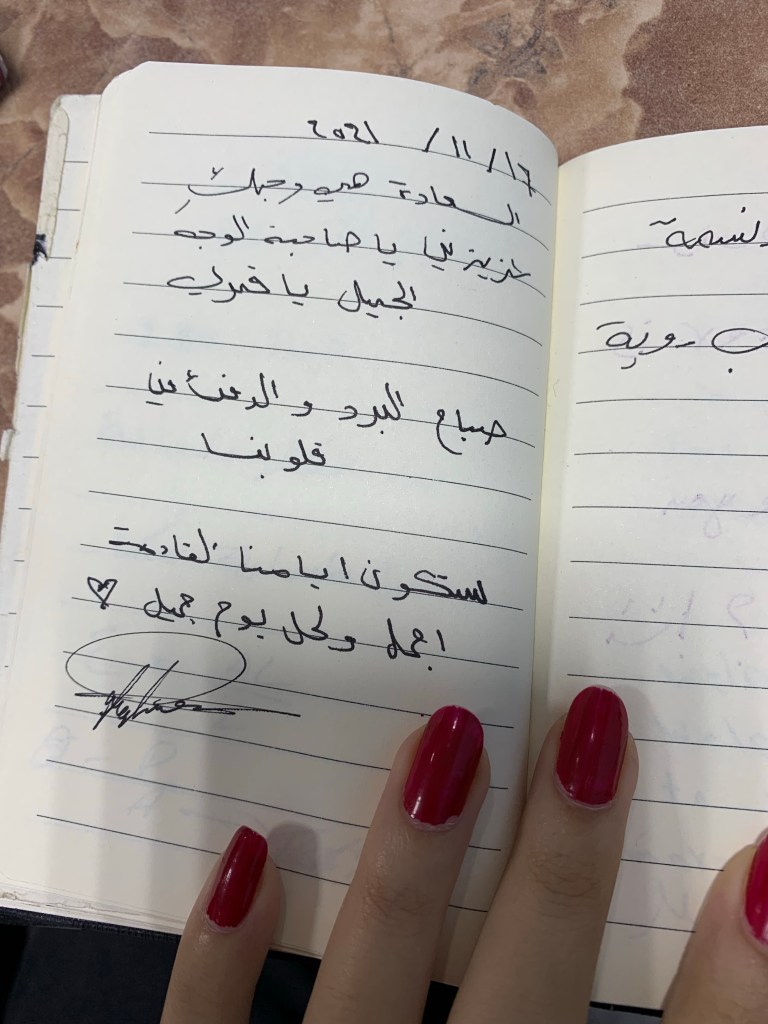 ١٦ / ١١ / ٢٠٢١
السعادة هي وجهكِ
عزيزتي يا صاحبة الوجه
الجميل يا قمري
صباح البرد و الدفئ في
قلوبنا
ستكون ايامنا القادمة
اجمل ولكل يوم جميل ♡
نسمة
روية